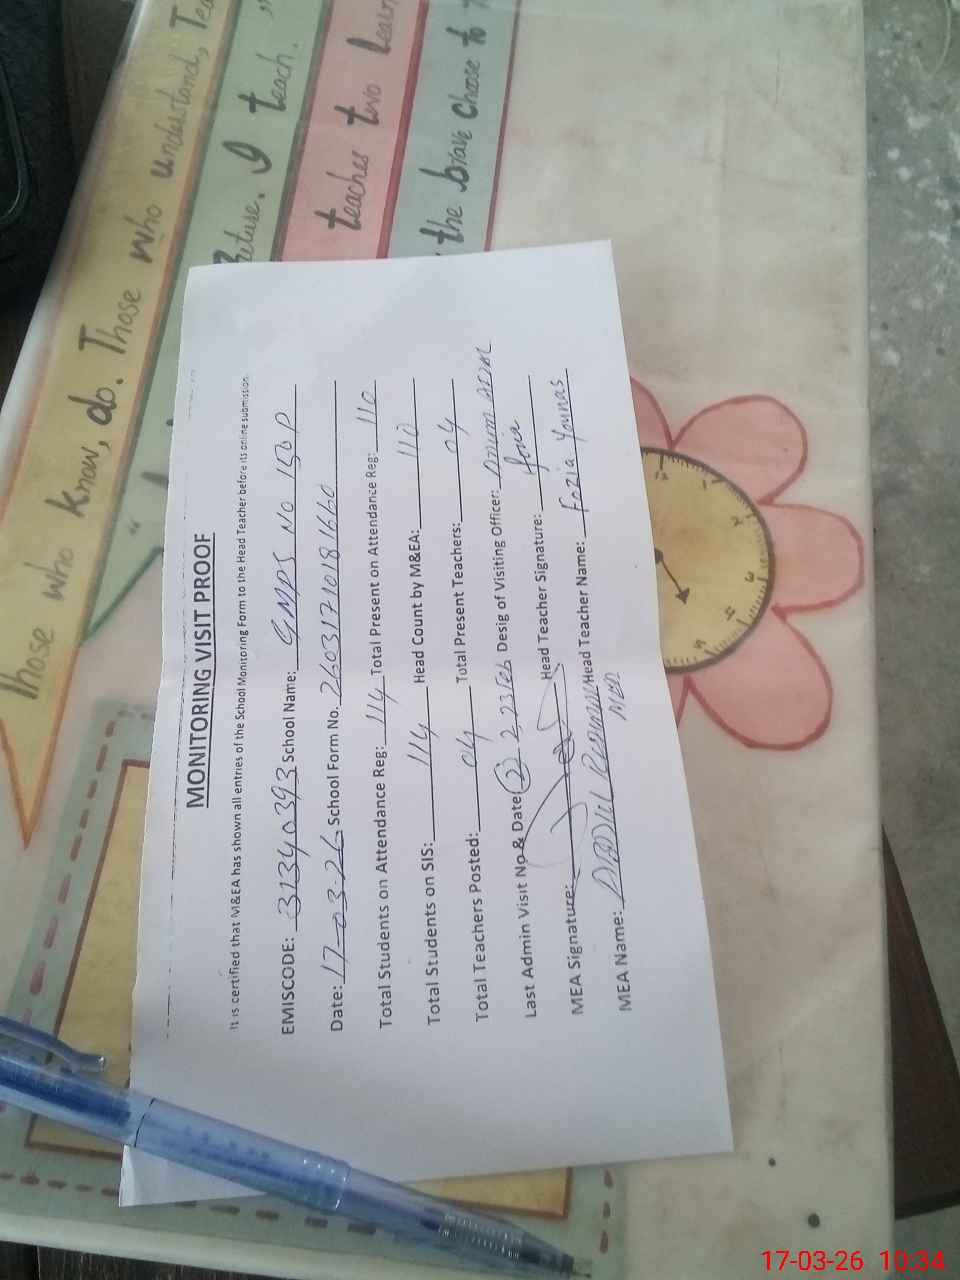 Those who know, do. Those who understand, Tea
Future. I teach.
teaches two Learn
the brave choose to
MONITORING VISIT PROOF
It is certified that M&EA has shown all entries of the School Monitoring Form to the Head Teacher before its online submission.
EMISCODE: 31340393 School Name: GMPS No 150 P
Date: 17-03-26 School Form No. 26031710181660
Total Students on Attendance Reg: 114 Total Present on Attendance Reg: 110
Total Students on SIS: 114 Head Count by M&EA: 110
Total Teachers Posted: 04 Total Present Teachers: 04
Last Admin Visit No & Date: (2) 2, 23 Feb Desig of Visiting Officer:
MEA Signature: Head Teacher Signature: Fozia
MEA Name: Abdul Rehman Head Teacher Name: Fozia Younas
MEA
17-03-26 10:34